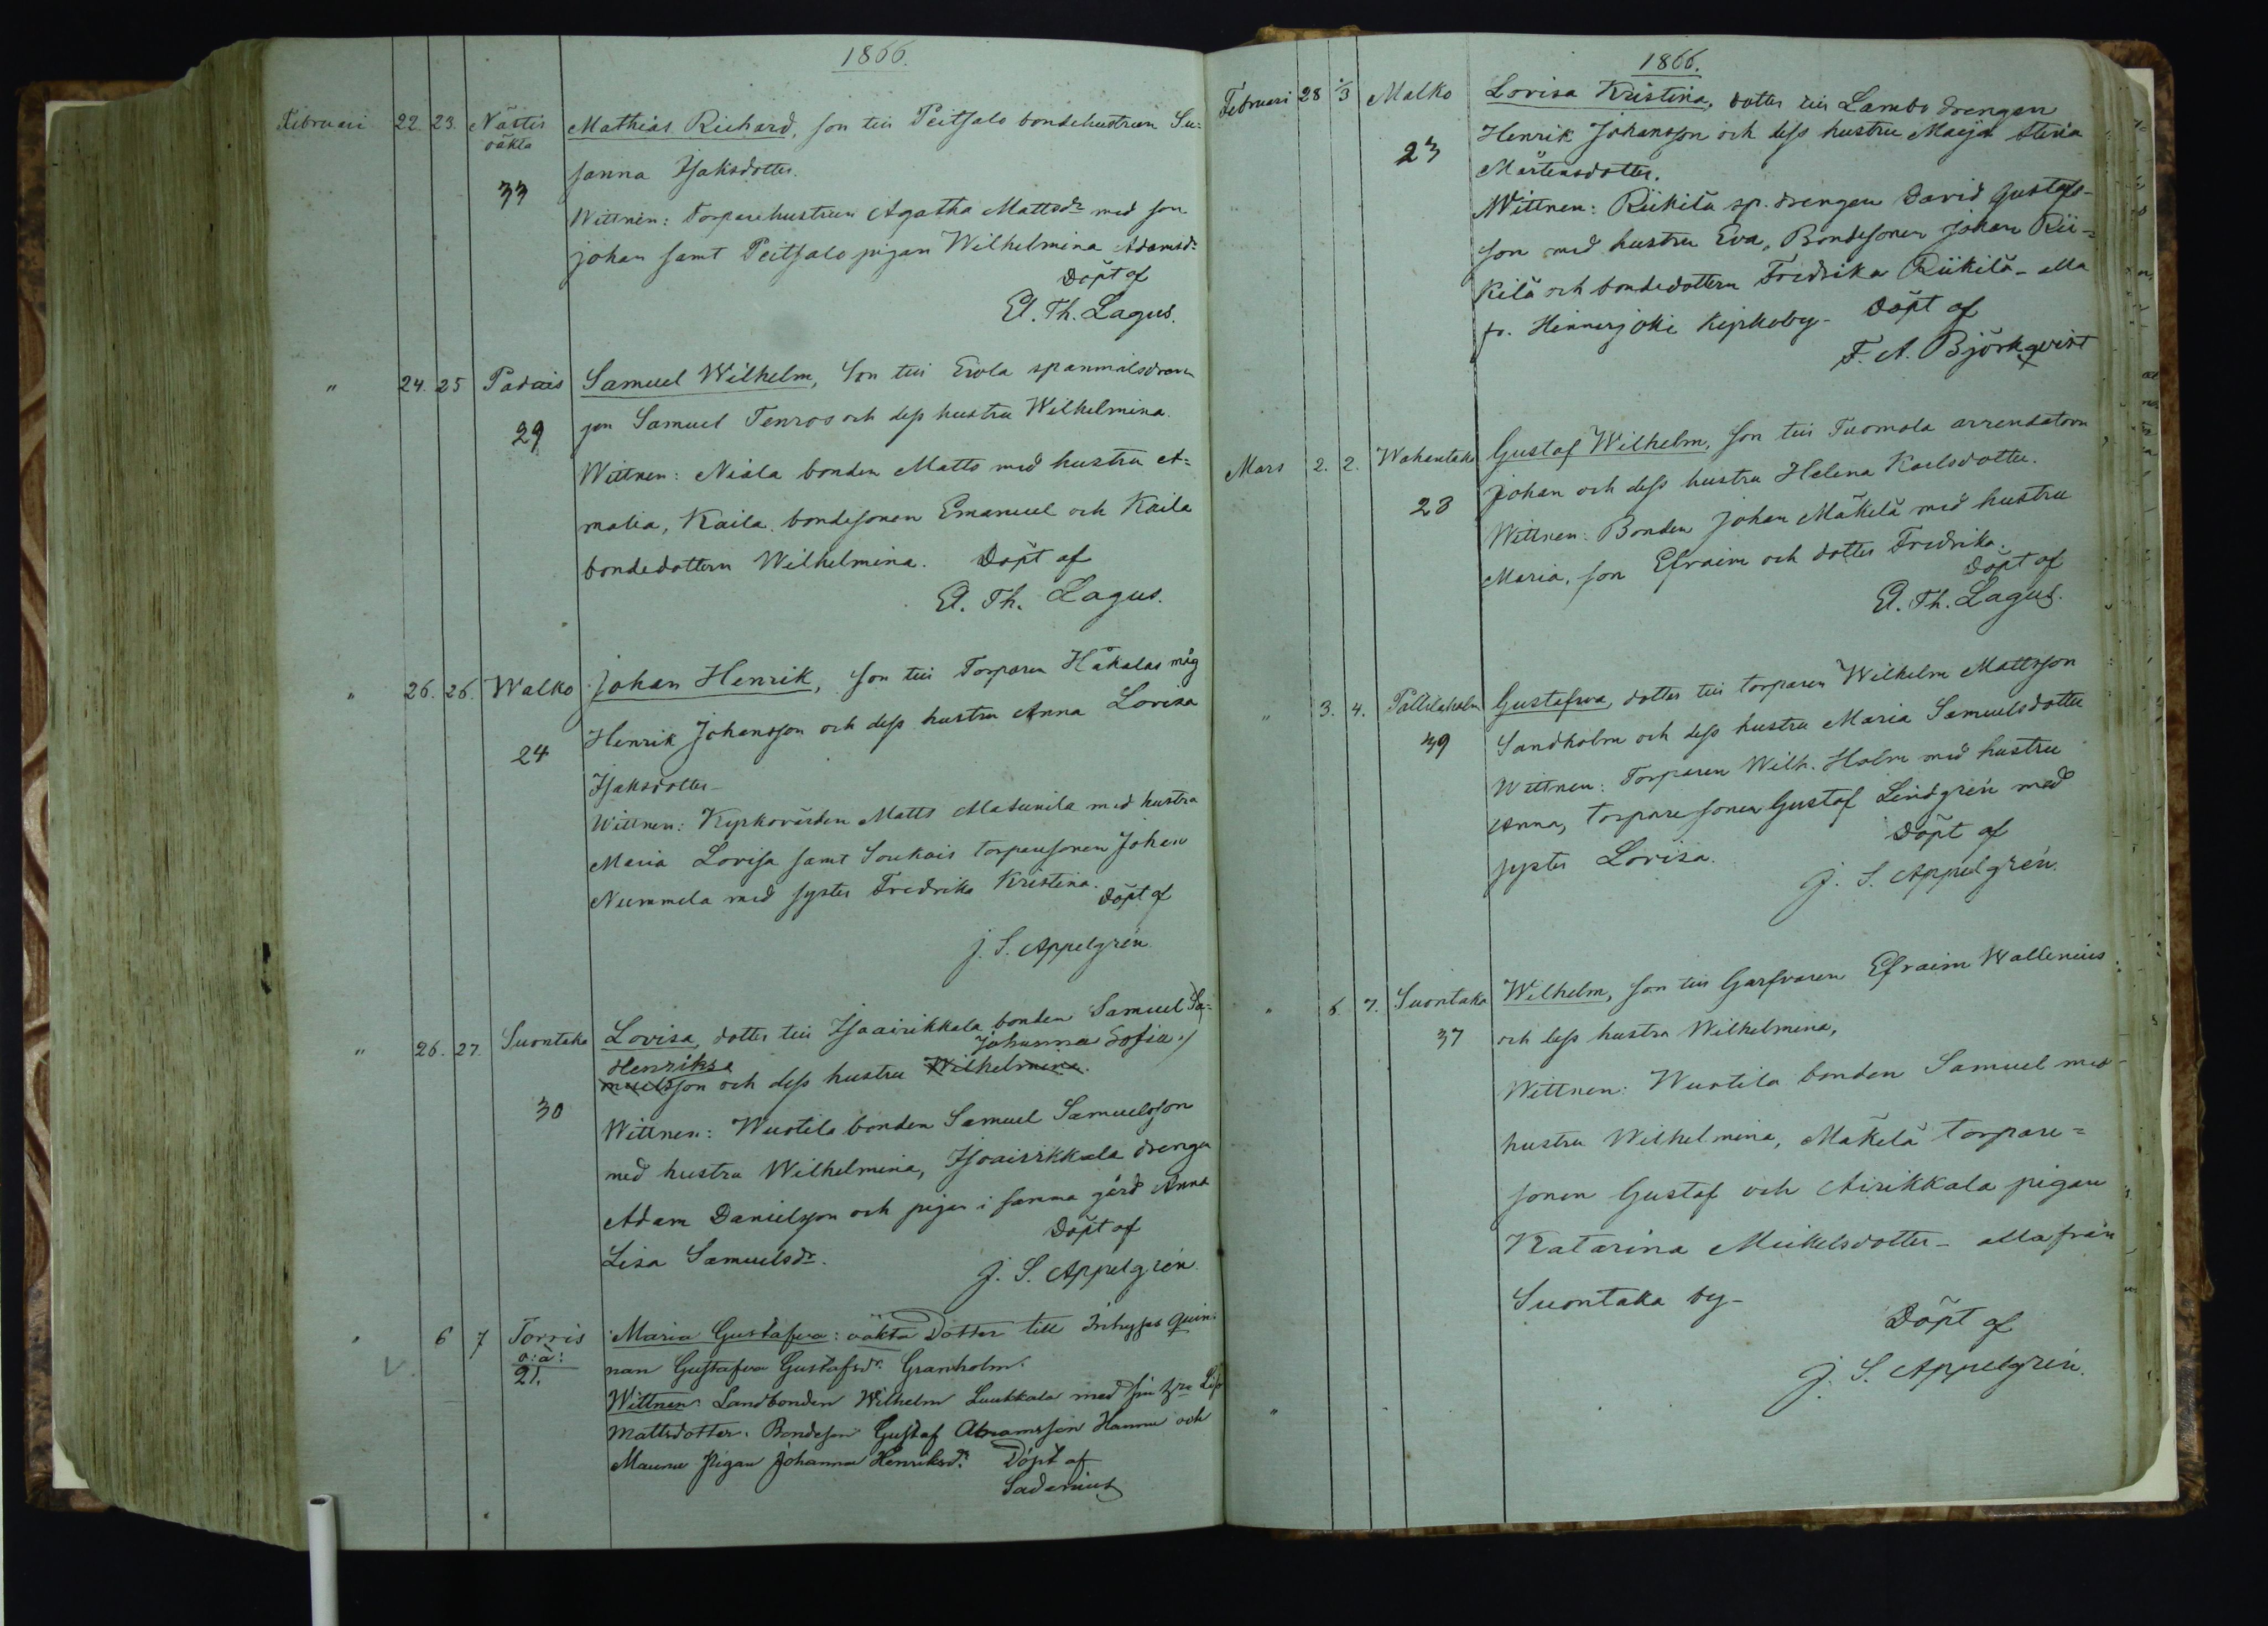 1866.
Februari 22. 23. Nästis Mathias Richard, son till Peitsalo bondehustrun Su-
oäkta
33 sanna Isaksdotter.
Wittnen: Torparehustrun Agatha Mattsdr med son
Johan samt Peitsalo pigan Wilhelmina Adamsdr
Döpt af
A. Th. Lagus.
" 24. 25 Padais Samuel Wilhelm, Son till Erola spanmålsdren
29 gen Samuel Tenros och dess hustru Wilhelmina.
Wittnen: Niala bonden Matts med hustru A-
malia, Kaila bondesonen Emanuel och Kaila
bondedottern Wilhelmina. Döpt af
A. Th. Lagus.
" 26. 26. Walko Johan Henrik, Son till Torparen Häkalas måg
24 Henrik Johansson och dess hustru Anna Lovisa
Isaksdotter-
Wittnen: Kyrkovärden Matts Masunila med hustru
Maria Lovisa samt Soukais torparesonen Johan
Nummela med syster Fredrika Kristina.
Döpt af
J. S. Appelgrén.
" 26. 27. Suontaka Lovisa, dotter till Isoairikkala bonden Samuel Sa-
Henriks Johanna Sofia.
muelsson och dess hustru Wilhelmina.
30 Wittnen: Wuotila bonden Samuel Samuelsson
med hustru Wilhelmina, Isoairikkala drengen
Adam Danielsson och pigan i samma gård Anna
Lisa Samuelsdr. Döpt af
J. S. Appelgrén.
" 6 7 Torris Maria Gustafva: oäkta Dotter till Inhyses Quin-
o:ä:
21. nan Gustafva Gustafsdr. Granholm.
Wittnen: Landbonden Wilhelm Luukkala med sin Hru Lisa
Mattsdotter. Bondeson Gustaf Abramsson Hannu och
Maunu Pigan Johanna Henriksdr. Döpt af
Sadenius
1866.
Februari 28 1/3 Malko Lovisa Kristina, dotter till Lambo drengen
23 Henrik Johansson och dess hustru Maija Stina
Mårtensdotter.
Wittnen: Riikilä sp. drengen David Gustafs-
son med hustru Eva, Bondesonen Johan Rii-
kilä och bondedottern Fredrika Riikilä - alla
fr. Hinnerjoki kyrkoby- Döpt af
F. A. Björkqvist
Mars 2. 2. Wahantaka Gustaf Wilhelm, Son till Tuomola arrendatorn
28 Johan och dess hustru Helena Karlsdotter.
Wittnen: Bonden Johan Mäkelä med hustru
Maria, son Efraim och dotter Fredrika.
Döpt af
A. Th. Lagus.
" 3. 4. Paltilaholm Gustafva, dotter till torparen Wilhelm Mattsson
39 Sandholm och dess hustru Maria Samuelsdotter
Wittnen: Torparen Wilh. Holm med hustru
Anna, torparesonen Gustaf Lindgrén med
syster Lovisa. Döpt af
J. S. Appelgrén.
" 6. 7. Suontaka Wilhelm, son till Garfvaren Efraim Wallenius
37 och dess hustru Wilhelmina,
Wittnen: Wuotila bonden Samuel med
hustru Wilhelmina, Mäkelä torpare-
sonen Gustaf och Airikkala pigan
Katarina Mickelsdotter- alla från
Suontaka by-
Döpt af
J. S. Appelgrén.
"